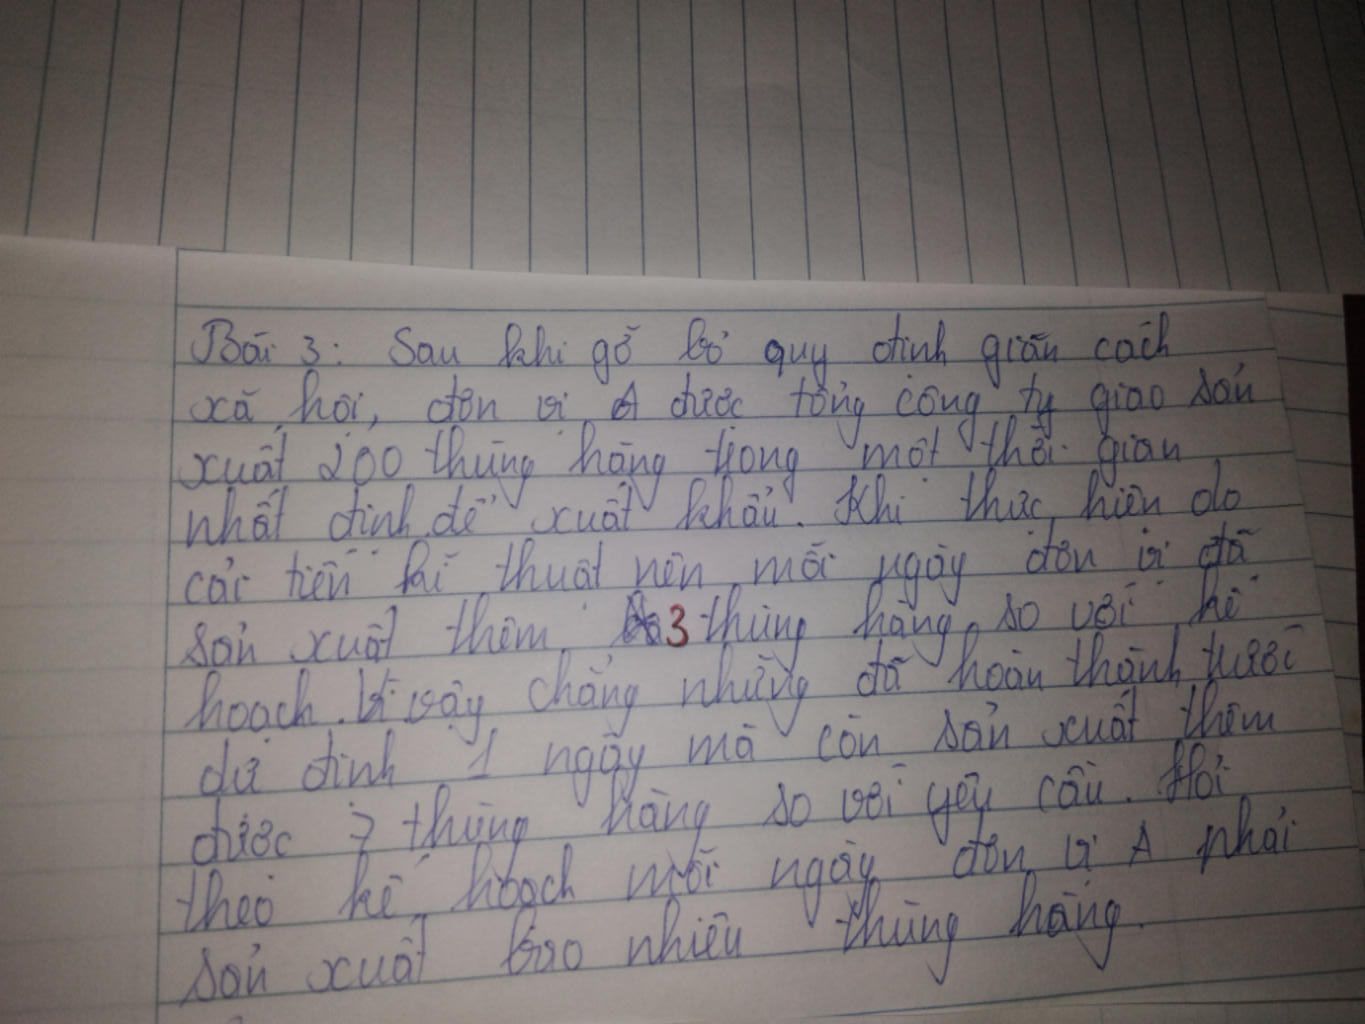 Bài 3: Sau khi gỡ bỏ quy định giãn cách
xã hội, đơn vị A được tổng công ty giao sản
xuất 200 thùng hàng trong một thời gian
nhất định để xuất khẩu. Khi thực hiện do
cải tiến kĩ thuật nên mỗi ngày đơn vị đã
sản xuất thêm 3 thùng hàng so với kế
hoạch. Vì vậy chẳng những đã hoàn thành trước
dự định 1 ngày mà còn sản xuất thêm
được 7 thùng hàng so với yêu cầu. Hỏi
theo kế hoạch mỗi ngày đơn vị A phải
sản xuất bao nhiêu thùng hàng.